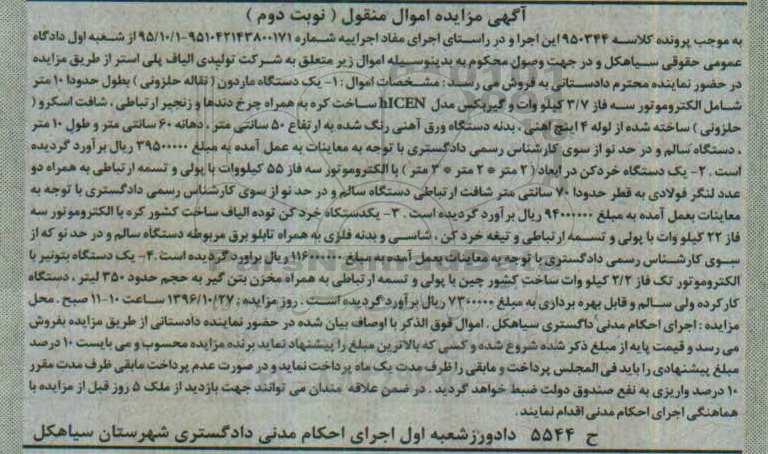 آگهی مزایده اموال منقول ( نوبت دوم )
به موجب پرونده کلاسه ۹۵۰۳۴۴ این اجرا و در راستای اجرای مفاد اجراییه شماره ۹۵۱۰۴۲۱۴۳۸۰۰۱۷۱-۹۵/۱۰/۱ از شعبه اول دادگاه
عمومی حقوقی سیاهکل و در جهت وصول محکوم به بدینوسیله اموال زیر متعلق به شرکت تولیدی الیاف پلی استر از طریق مزایده
در حضور نماینده محترم دادستانی به فروش می رسد : مشخصات اموال : ۱- یک دستگاه ماردون ( نقاله حلزونی ) بطول حدودا ۱۰ متر
شامل الکتروموتور سه فاز ۳/۷ کیلو وات و گیربکس مدل hICEN ساخت کره به همراه چرخ دندها و زنجیر ارتباطی ، شافت اسکرو (
حلزونی ) ساخته شده از لوله ۴ اینچ آهنی ، بدنه دستگاه ورق آهنی رنگ شده به ارتفاع ۵۰ سانتی متر ، دهانه ۶۰ سانتی متر و طول ۱۰ متر
، دستگاه سالم و در حد نو از سوی کارشناس رسمی دادگستری با توجه به معاینات به عمل آمده به مبلغ ۳۹۵۰۰۰۰۰ ریال برآورد گردیده
است . ۲- یک دستگاه خردکن در ابعاد ( ۲ متر * ۲ متر * ۳ متر ) با الکتروموتور سه فاز ۵۵ کیلووات با پولی و تسمه ارتباطی به همراه دو
عدد لنگر فولادی به قطر حدودا ۷۰ سانتی متر شافت ارتباطی دستگاه سالم و در حد نو از سوی کارشناس رسمی دادگستری با توجه به
معاینات بعمل آمده به مبلغ ۹۴۰۰۰۰۰۰ ریال برآورد گردیده است . ۳- یکدستگاه خرد کن توده الیاف ساخت کشور کره با الکتروموتور سه
فاز ۲۲ کیلو وات با پولی و تسمه ارتباطی و تیغه خرد کن ، شاسی و بدنه فلزی به همراه تابلو برق مربوطه دستگاه سالم و در حد نو که از
سوی کارشناس رسمی دادگستری با توجه به معاینات بعمل آمده به مبلغ ۱۱۶۰۰۰۰۰۰ ریال براورد گردیده است .۴- یک دستگاه بتونیر با
الکتروموتور تک فاز ۲/۲ کیلو وات ساخت کشور چین با پولی و تسمه ارتباطی به همراه مخزن بتن گیر به حجم حدود ۳۵۰ لیتر ، دستگاه
کارکرده ولی سالم و قابل بهره برداری به مبلغ ۷۳۰۰۰۰۰ ریال برآورد گردیده است . روز مزایده : ۱۳۹۶/۱۰/۲۷ ساعت ۱۰-۱۱ صبح . محل
مزایده : اجرای احکام مدنی داگستری سیاهکل . اموال فوق الذکر با اوصاف بیان شده در حضور نماینده دادستانی از طریق مزایده بفروش
می رسد و قیمت پایه از مبلغ ذکر شده شروع شده و کسی که بالاترین مبلغ را پیشنهاد نماید برنده مزایده محسوب و می بایست ۱۰ درصد
مبلغ پیشنهادی را باید فی المجلس پرداخت و مابقی را ظرف مدت یک ماه پرداخت نماید و در صورت عدم پرداخت مابقی ظرف مدت مقرر
۱۰ درصد واریزی به نفع صندوق دولت ضبط خواهد گردید . در ضمن علاقه مندان می توانند جهت بازدید از ملک ۵ روز قبل از مزایده با
هماهنگی اجرای احکام مدنی اقدام نمایند.
ح ۵۵۴۴ دادورز شعبه اول اجرای احکام مدنی دادگستری شهرستان سیاهکل